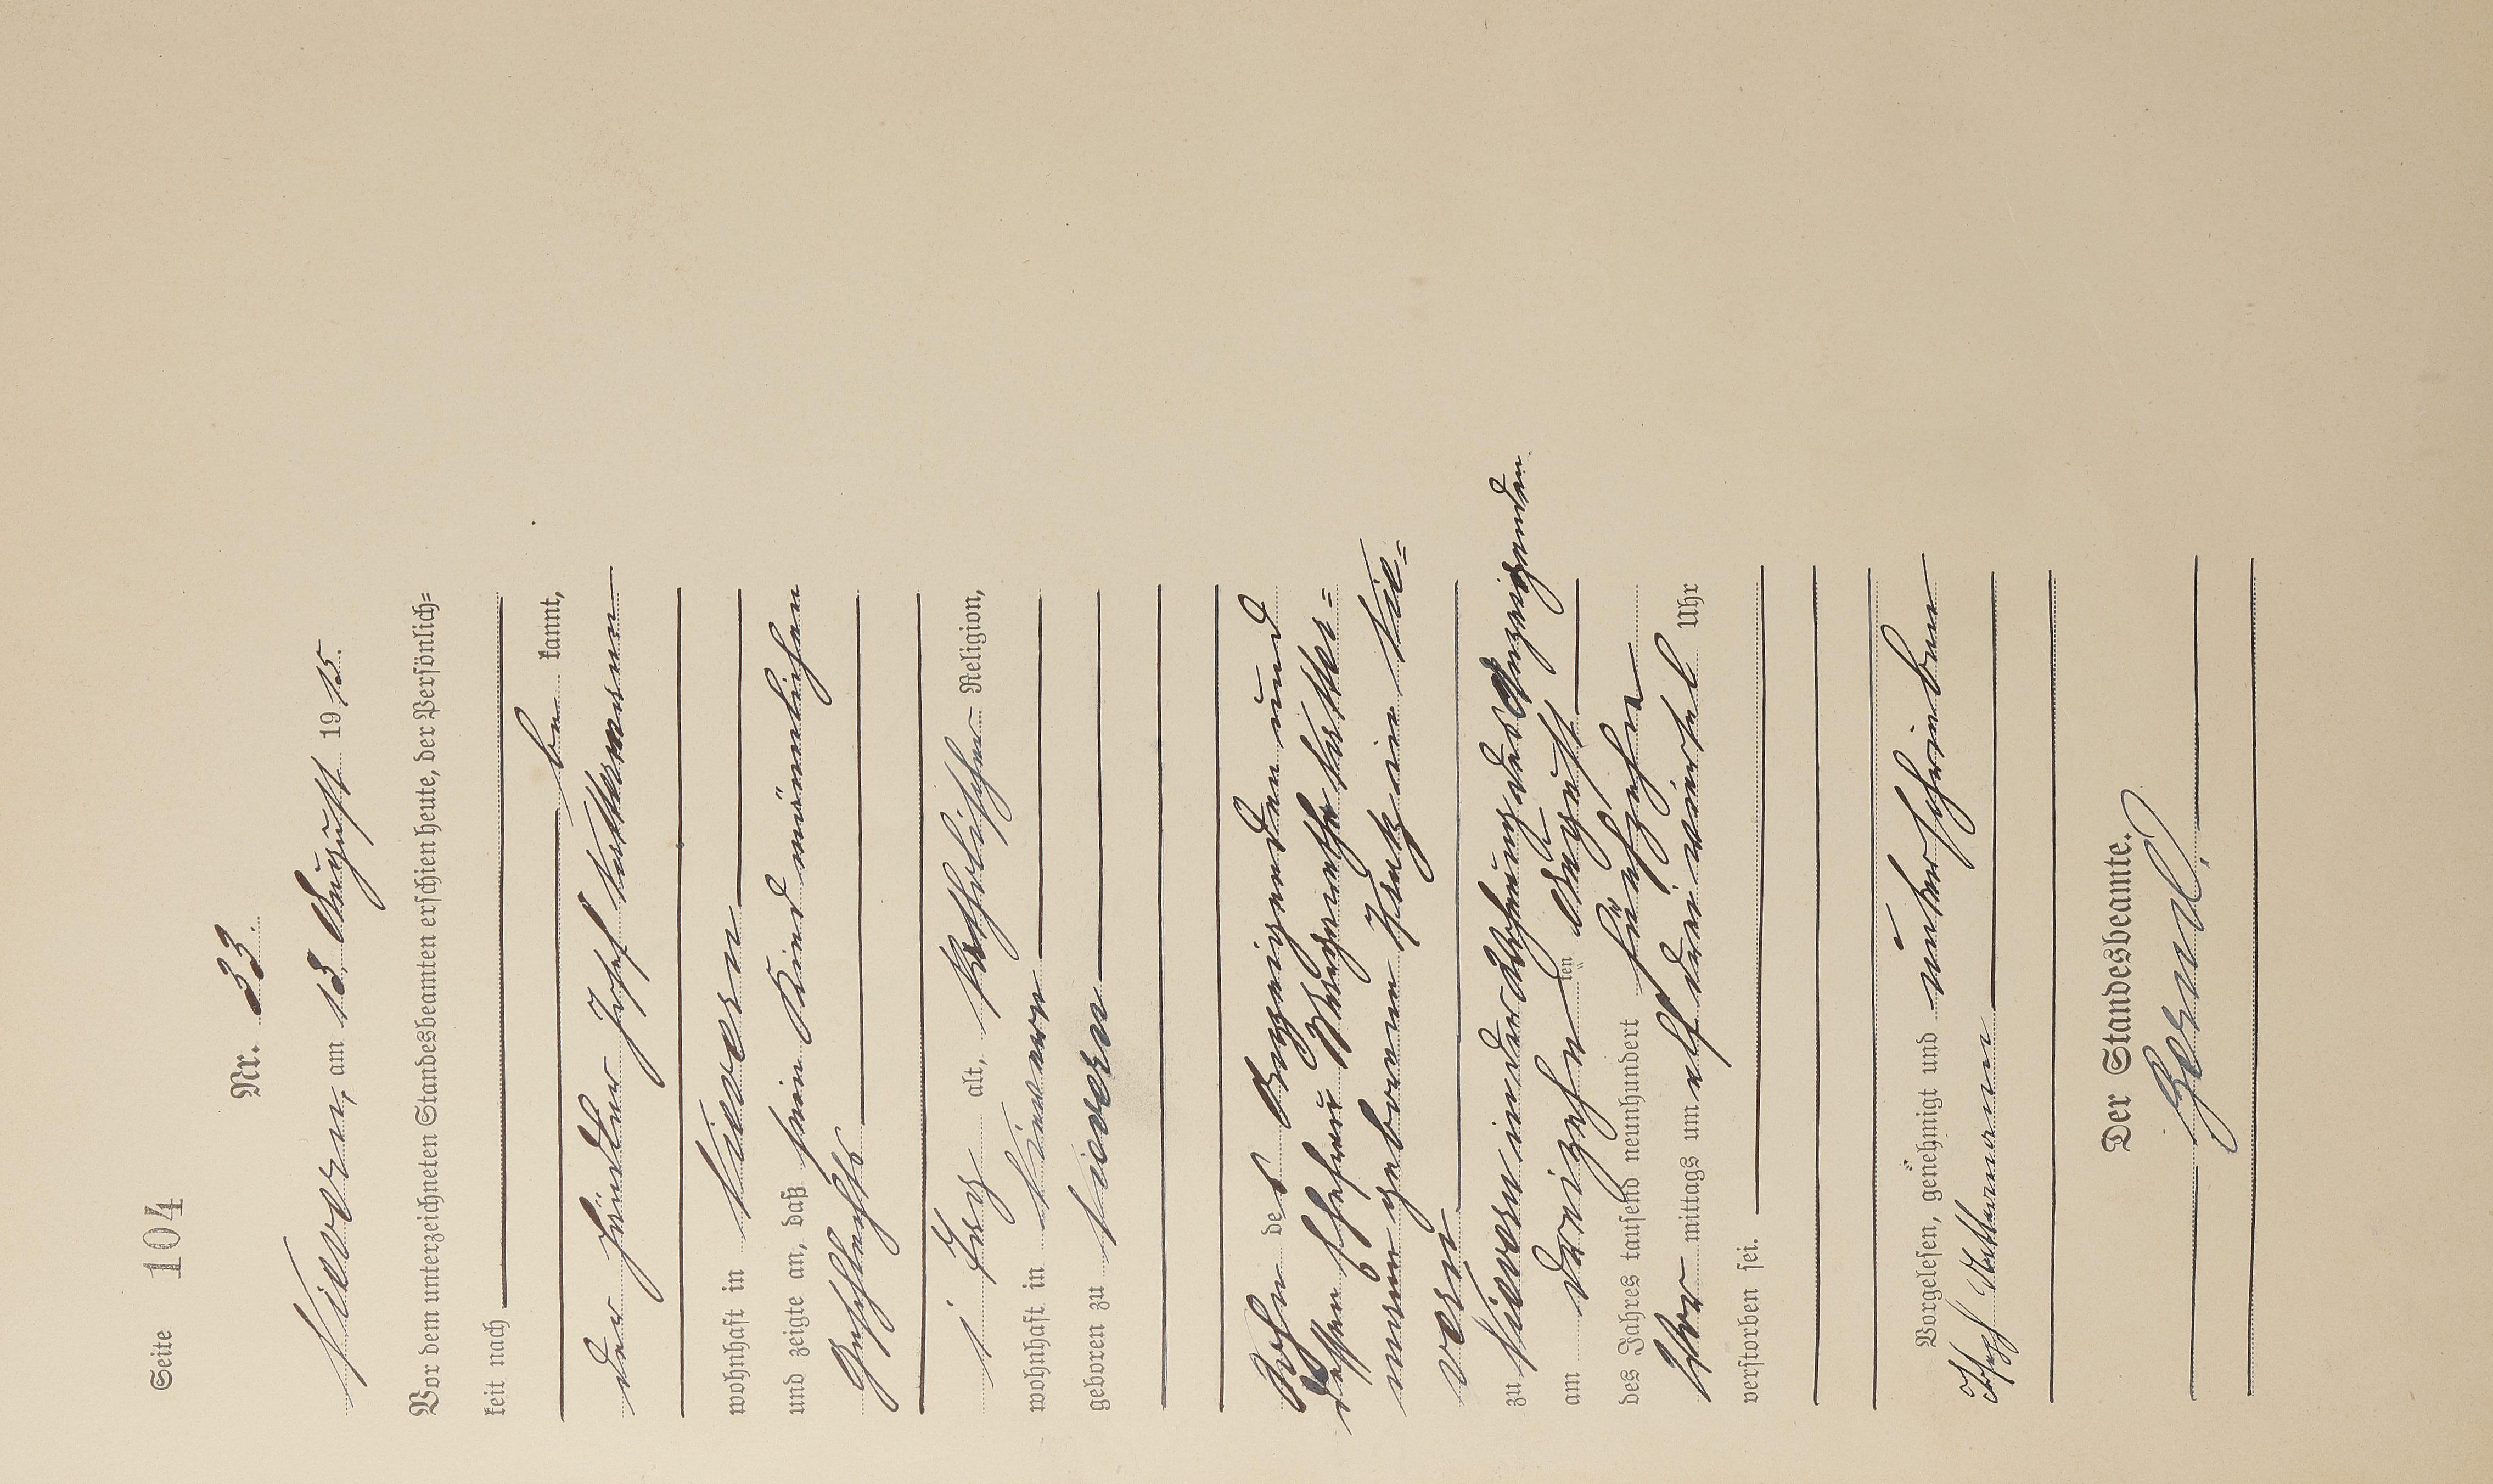 Seite 104
Nr. 33.
Nievern, am 13. August 1915.
Vor dem unterzeichneten Standesbeamten erschien heute, der Persönlich=
keit nach
be kannt,
der Händler Josef Nattermann
wohnhaft in Nievern
und zeigte an, daß sein Kind männlichen
Geschlechts
1 Tag alt, katholischer Religion,
wohnhaft in Nievern
geboren zu Nievern
Sohn des Anzeigenden und
dessen Ehefrau Margaretha Natter=
mann geborenen in Nie=
vern
zu Nievern in der Wohnung des Anzeigenden
am dreizehn ten August
des Jahres tausend neunhundert fünfzehn
Vor mittags um elf drei viertel Uhr
verstorben sei.
Vorgelesen, genehmigt und unterschrieben
Josef Nattermann
Der Standesbeamte.